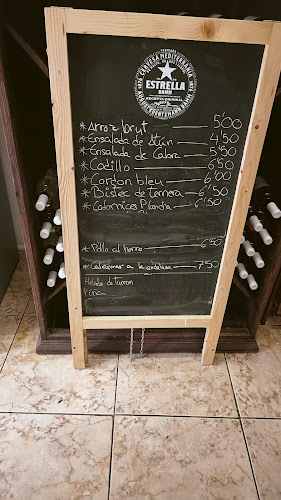 CERVEZA MEDITERRÁNEA
ESTRELLA
DAMM
RECEPTA ORIGINAL
* Arroz brut 5'00
* Ensalada de Atún 4'50
* Ensalada de Cabra 5'50
* Codillo 6'50
* Cordon bleu 6'00
* Bistec de ternera 6'50
* Codornices Plancha 6'50
* Pollo al horno 6'50
* Calamares a la andaluza 7'50
Helado de turron
Piña